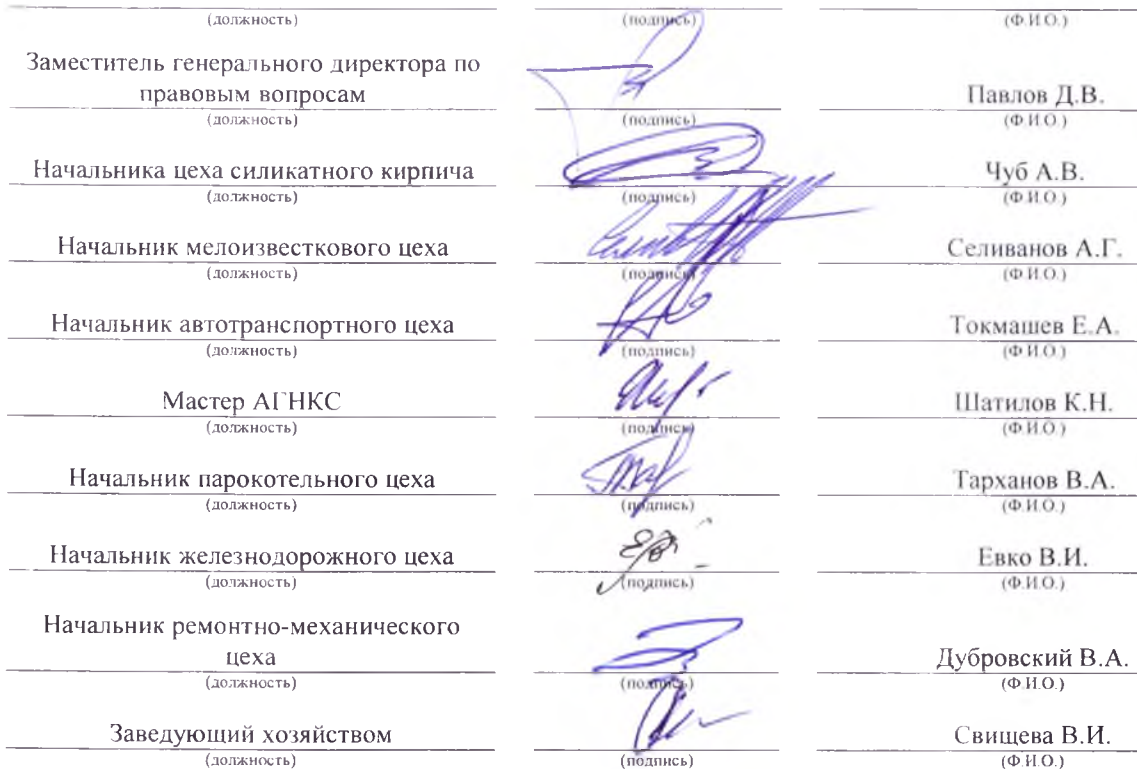 (должность) (подпись) (Ф.И.О.)
Заместитель генерального директора по
правовым вопросам Павлов Д.В.
(должность) (подпись) (Ф.И.О.)
Начальника цеха силикатного кирпича Чуб А.В.
(должность) (подпись) (Ф.И.О.)
Начальник мелоизвесткового цеха Селиванов А.Г.
(должность) (подпись) (Ф.И.О.)
Начальник автотранспортного цеха Токмашев Е.А.
(должность) (подпись) (Ф.И.О.)
Мастер АГНКС Шатилов К.Н.
(должность) (подпись) (Ф.И.О.)
Начальник парокотельного цеха Тарханов В.А.
(должность) (подпись) (Ф.И.О.)
Начальник железнодорожного цеха Евко В.И.
(должность) (подпись) (Ф.И.О.)
Начальник ремонтно-механического
цеха Дубровский В.А.
(должность) (подпись) (Ф.И.О.)
Заведующий хозяйством Свищева В.И.
(должность) (подпись) (Ф.И.О.)